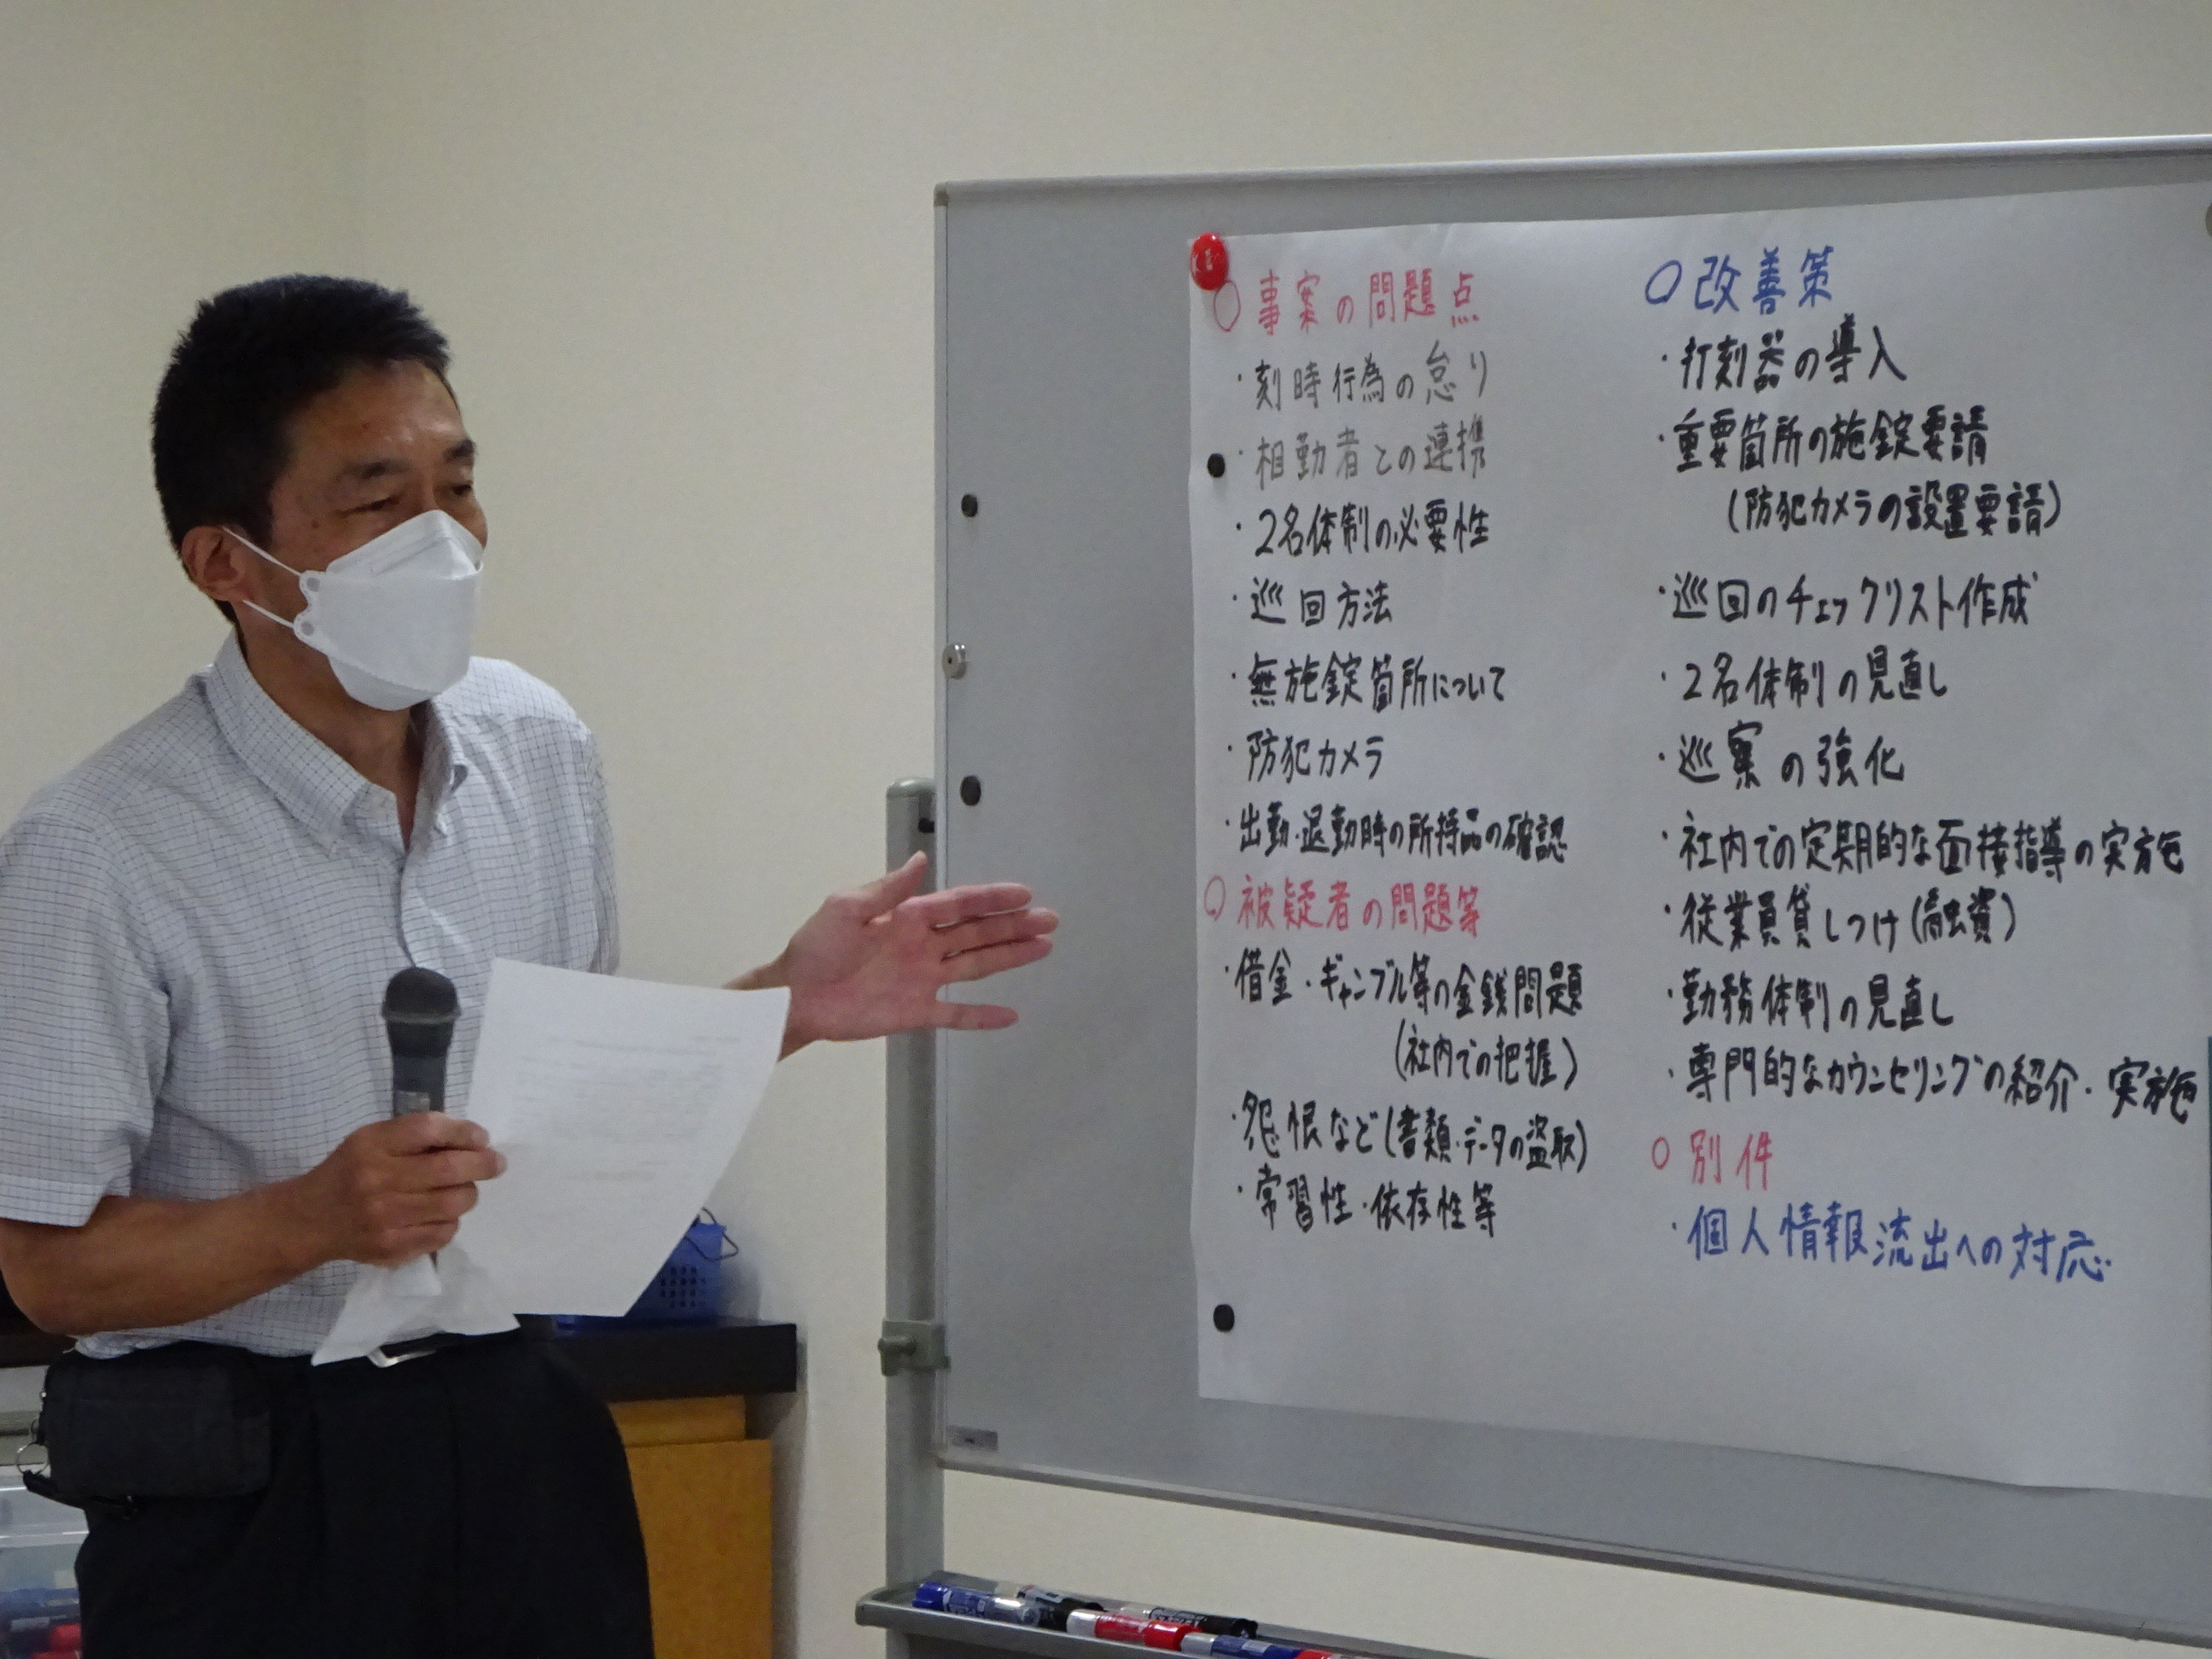 ○事案の問題点
・刻時行為の怠り
・相勤者との連携
・2名体制の必要性
・巡回方法
・無施錠箇所について
・防犯カメラ
・出勤・退勤時の所持品の確認
○被疑者の問題等
・借金・ギャンブル等の金銭問題
(社内での把握)
・怨恨など(書類・データの盗取)
・常習性・依存性等
○改善策
・打刻器の導入
・重要箇所の施錠要請
(防犯カメラの設置要請)
・巡回のチェックリスト作成
・2名体制の見直し
・巡察の強化
・社内での定期的な面接指導の実施
・従業員貸しつけ(融資)
・勤務体制の見直し
・専門的なカウンセリングの紹介・実施
○別件
・個人情報流出への対応